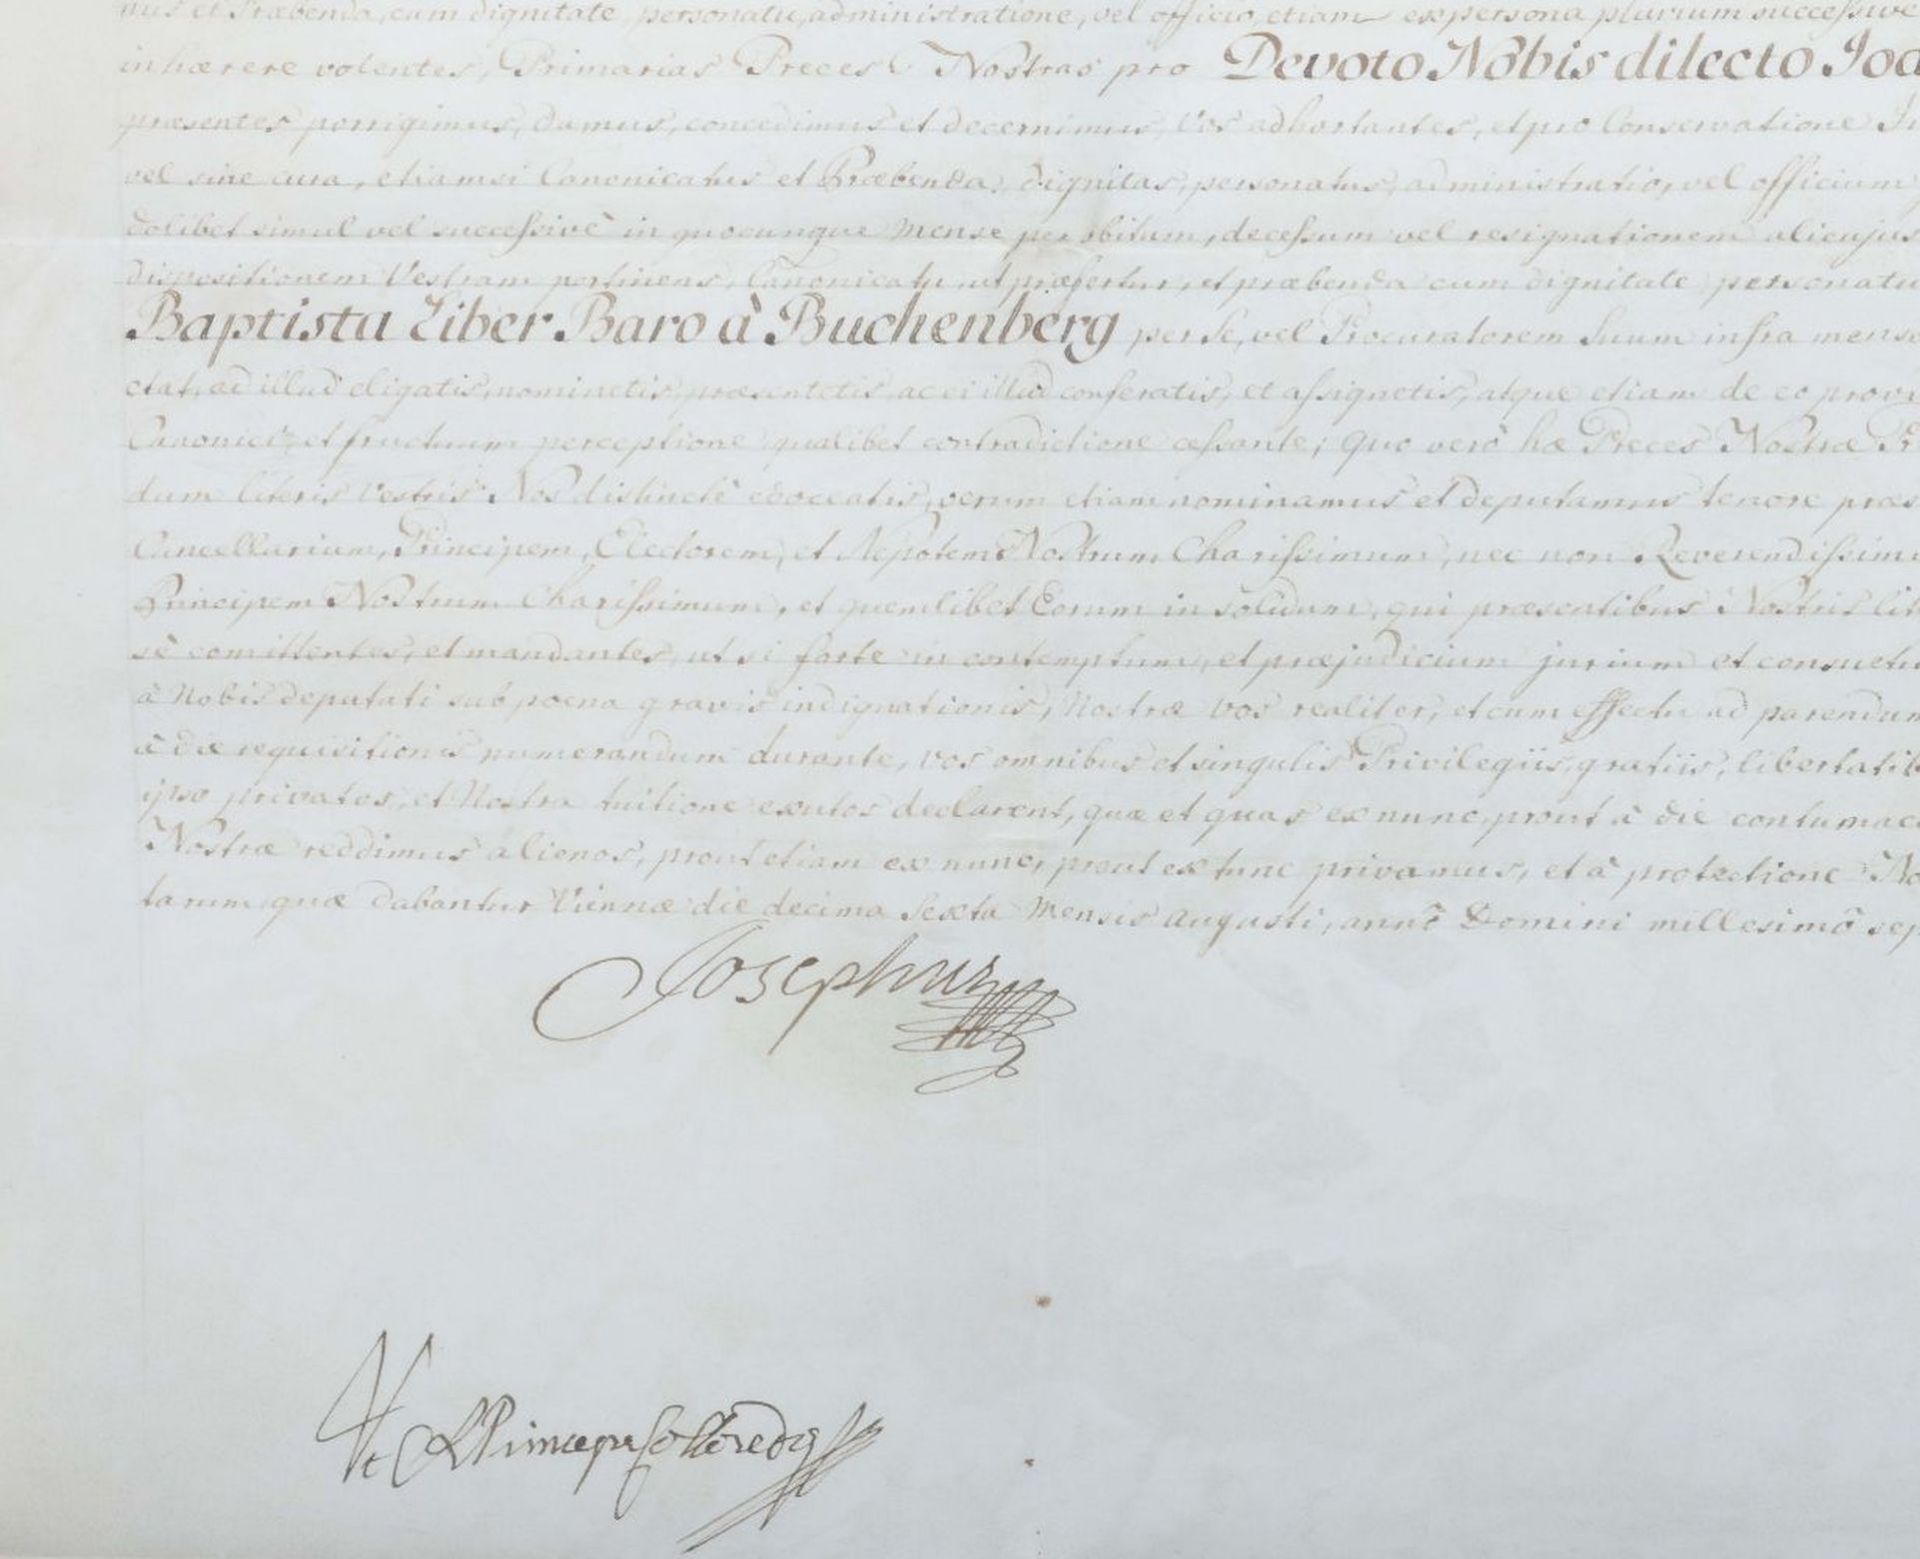 nus et Præbenda, cum dignitate, personatu, administratione, vel officio, etiam ex persona plurium successive
inhærere volentes, Primarias Preces Nostras pro Devoto Nobis dilecto Joa
præsentes porrigimus, damus, concedimus et decernimus, Vos adhortantes, et pro Conservatione
vel sine cura, etiamsi Canonicatus et Præbenda, dignitas, personatus, administratio, vel officium
dolibet simul vel successivè in quocunque Mense per obitum, decessum vel resignationem alicujus
dispositionem Vestram pertinens, Canonicatu, ut præfertur, et præbenda cum dignitate personatu
Baptista Liber Baro à Buchenberg per Se, vel Procuratorem Suum infra mense
ctat, ad illud eligatis, nominetis, præsentetis, ac ei illud conferatis, et assignetis, atque etiam de eo provi
Canonici, et fructuum perceptione qualibet contradictione cessante; Quo verò hæ Preces Nostræ Pr
dum literis Vestris Nos distinctè edoceatis, verum etiam nominamus et deputamus tenore præs
Cancellarium, Principem, Electorem, et Nepotem Nostrum Charissimum, nec non Reverendissim
Principem Nostrum Charissimum, et quemlibet Eorum in solidum, qui præsentibus Nostris lit
sè comittentes, et mandantes, ut si forte in contemptum, et præjudicium jurium et consuetu
à Nobis deputati sub poena gravis indignationis, Nostræ Vos realiter, et cum effectu ad parendum
à die requisitionis numerandum durante, vos omnibus et singulis Privilegiis, gratiis, libertatib
ipso privatos, et Nostra tuitione exutos declarent, quæ et quas ex nunc, prout à die contumac
Nostræ reddimus alienos, prout etiam ex nunc, prout ex tunc privamus, et à protectione No
tarum, quæ dabantur Viennæ die decima Sexta Mensis Augusti, annô Domini millesimô sep
Josephus
Vt R Princeps Colloredo